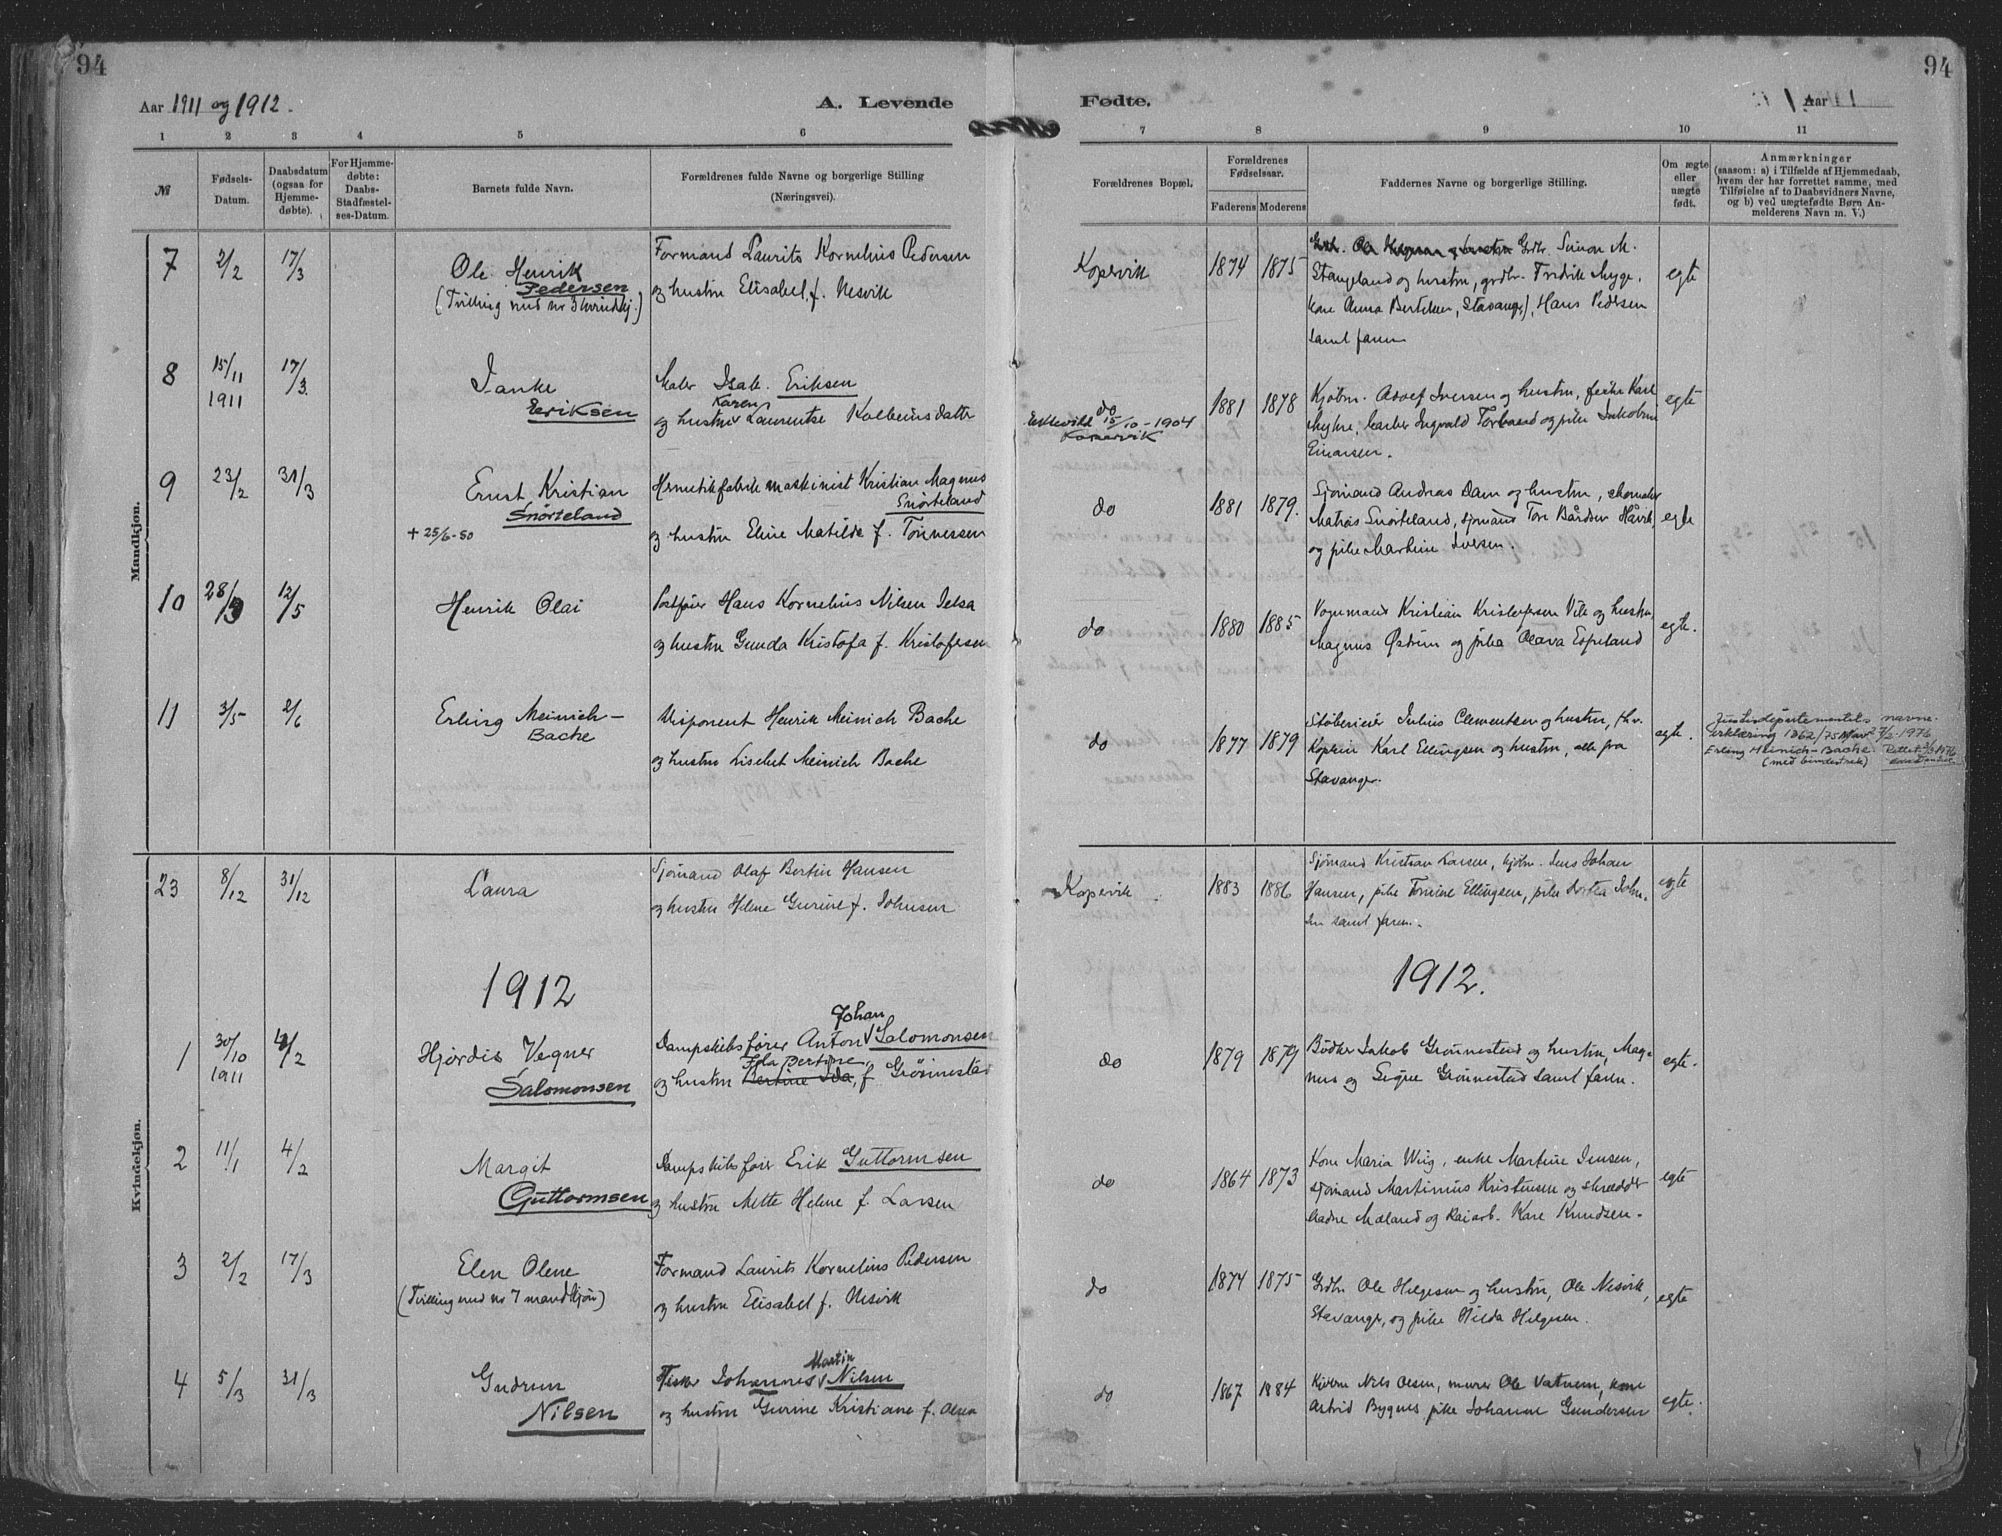 94
Aar 1911 og 1912.
A. Levende
1 2 3 4 5 6
№
Fødsels-
Datum.
Daabsdatum
(ogsaa for
Hjemme-
døbte).
For Hjemme-
døbte:
Daabs-
Stadfæstel-
ses-Datum.
Barnets fulde Navn.
Forældrenes fulde Navne og borgerlige Stilling
(Næringsvei).
Mandkjøn.
7 2/2 17/3
Ole Henrik
Pedersen
(Tvilling med nr 3 kvindekj.)
Formand Laurits Kornelius Pedersen
og hustru Elisabet f. Nesvik
8 15/11 1911 17/3
Janke
Eriksen
Maler Isak Eriksen
Karen
og hustru Laurentse Kolbeinsdatter
9 23/2 31/3
Ernst Kristian
Snørteland
+ 25/6-50
Hermetikfabrik maskinist Kristian Magnus
Snørteland
og hustru Eline Matilde f. Tønnessen
10 28/3 12/5
Henrik Olai
Postfører Hans Kornelius Nilsen Jelsa
og hustru Gunda Kristofa f. Kristofersen
11 3/5 2/6
Erling Meinich-
Bache
Disponent Henrik Meinich Bache
og hustru Lisebet Meinich Bache
Kvindekjøn.
23 8/12 31/12
Laura
Sjømand Olaf Bertin Hansen
og hustru Helene Gurine f. Johnsen
1912
1 30/10 1911 4/2
Hjørdis Vegner
Salomonsen
Johan
Dampskibsfører Anton Salomonsen
Ida Bertine
og hustru Bertine Ida, f. Grønnestad
2 11/1 4/2
Margit
Guttormsen
Dampskibsfører Erik Guttormsen
og hustru Mette Helene f. Larsen
3 2/2 17/3
Elen Olene
(Tvilling med nr 7 mandkjøn)
Formand Laurits Kornelius Pedersen
og hustru Elisabet f. Nesvik
4 5/3 31/3
Gudrun
Nilsen
Martin
Fisker Johannes Nilsen
og hustru Gurine Kristiane f. Olsen
94
Fødte.
Aar 1
7 8 9 10 11
Forældrenes Bopæl.
Forældrenes
Fødselsaar.
Faderens Moderens
Faddernes Navne og borgerlige Stilling.
Om ægte
eller
uægte
født.
Anmærkninger
(saasom: a) i Tilfælde af Hjemmedaab,
hvem der har forrettet samme, med
Tilføielse af to Daabsvidners Navne,
og b) ved uægtefødte Børn An-
melderens Navn m. V.)
Kopervik 1874 1875
Grdbr. Simon M.
Stangeland og hustru, grdbr. Fredrik Myge,
kone Anna Bertelsen, Stavanger, Hans Pedersen
samt faren
egte
do
15/10-1904
Kopervik
1881 1878
Kjøbm. Adolf Iversen og hustru, fisker Karl
Myhre, barber Ingvald Torland og pike Jakobine
Einarsen.
egte
do 1881 1879.
Sjømand Andreas Dam og hustru, skomaker
Matias Snørteland, sjømand Tore Bårdsen Håvik,
og pike Martine Iversen.
egte
do 1880 1885
Vognmand Kristian Kristofersen Vik og hustru,
Magnus Østrem og pike Olava Espeland
egte.
do 1877 1879
Støberieier Julius Clementsen og hustru, fhv.
Kaptein Karl Ellingsen og hustru, alle fra
Stavanger.
egte.
Justisdepartementets navne-
erklæring 1262/75 2/2-1976
Erling Meinich-Bache. Rettet
(med bindestrek)
Kopervik 1883 1886
Sjømand Kristian Larsen, kjøbm. Jens Johan
Hansen, pike Tomine Ellingsen, pike Dortea John-
sen samt faren.
egte
1912.
do 1879 1879
Bødker Jakob Grønnestad og hustru, Mag-
nus og Signe Grønnestad samt faren.
egte.
do 1864 1873
Kone Maria Wiig, enke Martine Jensen,
sjømand Martinus Kristensen og skrædder
Aadne Mæland og Kaiarb. Kare Knudsen.
egte
do 1874 1875
Grdbr. Ole Helgesen og hustru, Ole Nesvik,
Stavanger, og pike Hilda Helgesen.
egte
do 1867 1884
Nils Olsen, murer Ole Vatnem, kone
Astrid Bygnes pike Johanne Gundersen
egte.